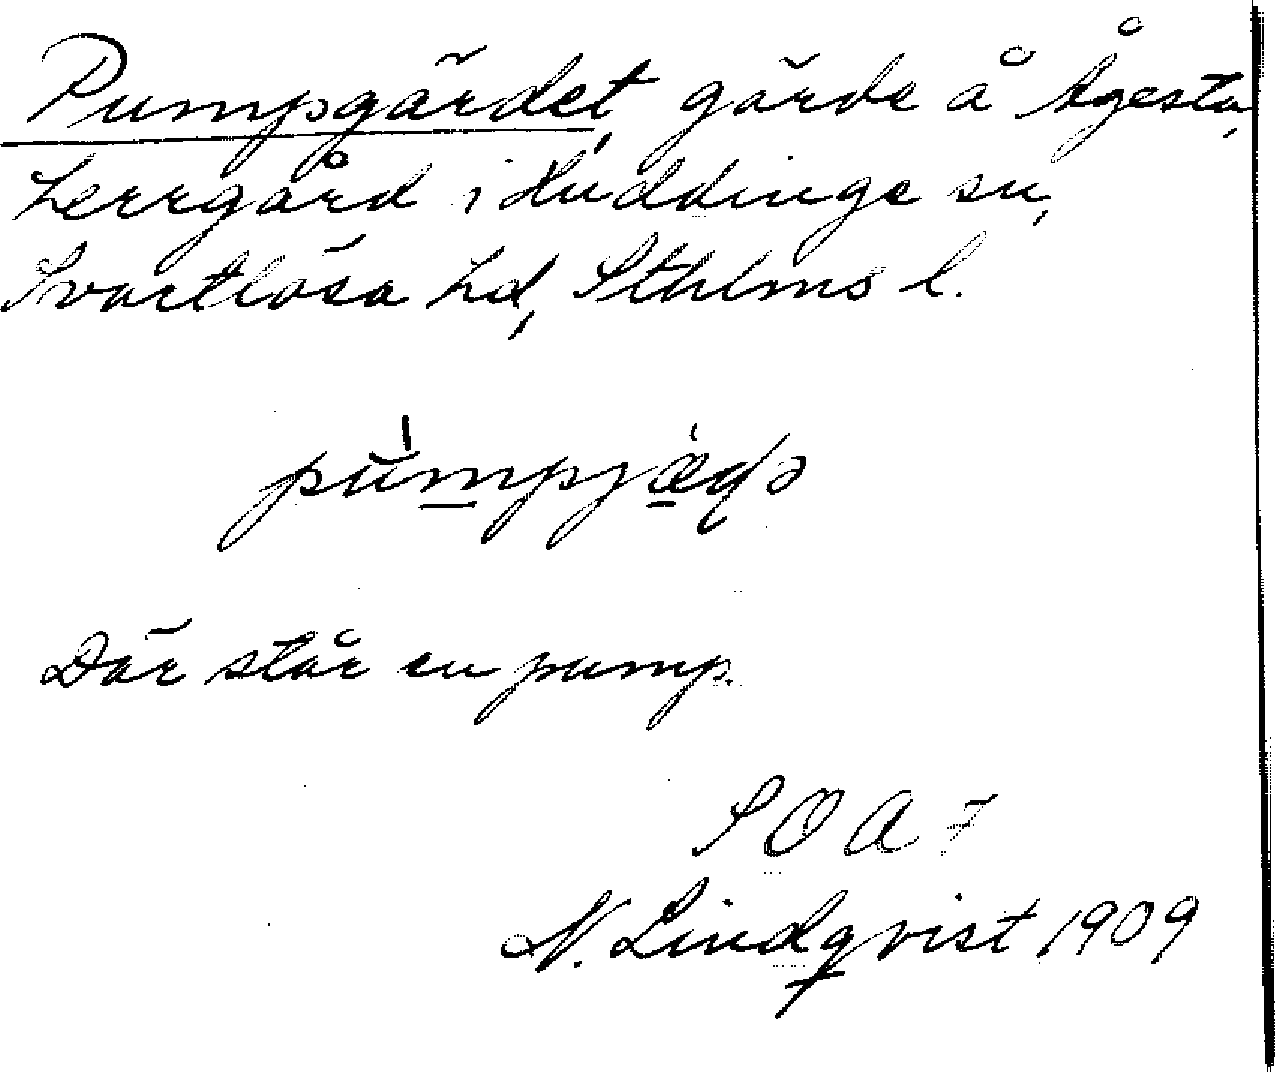 Pumpgärdet, gärde å Ågesta,
herrgård i Huddinge sn,
Svartlösa hd, Sthlms l.
Där står en pump.
SOA 7
N. Lindqvist 1909